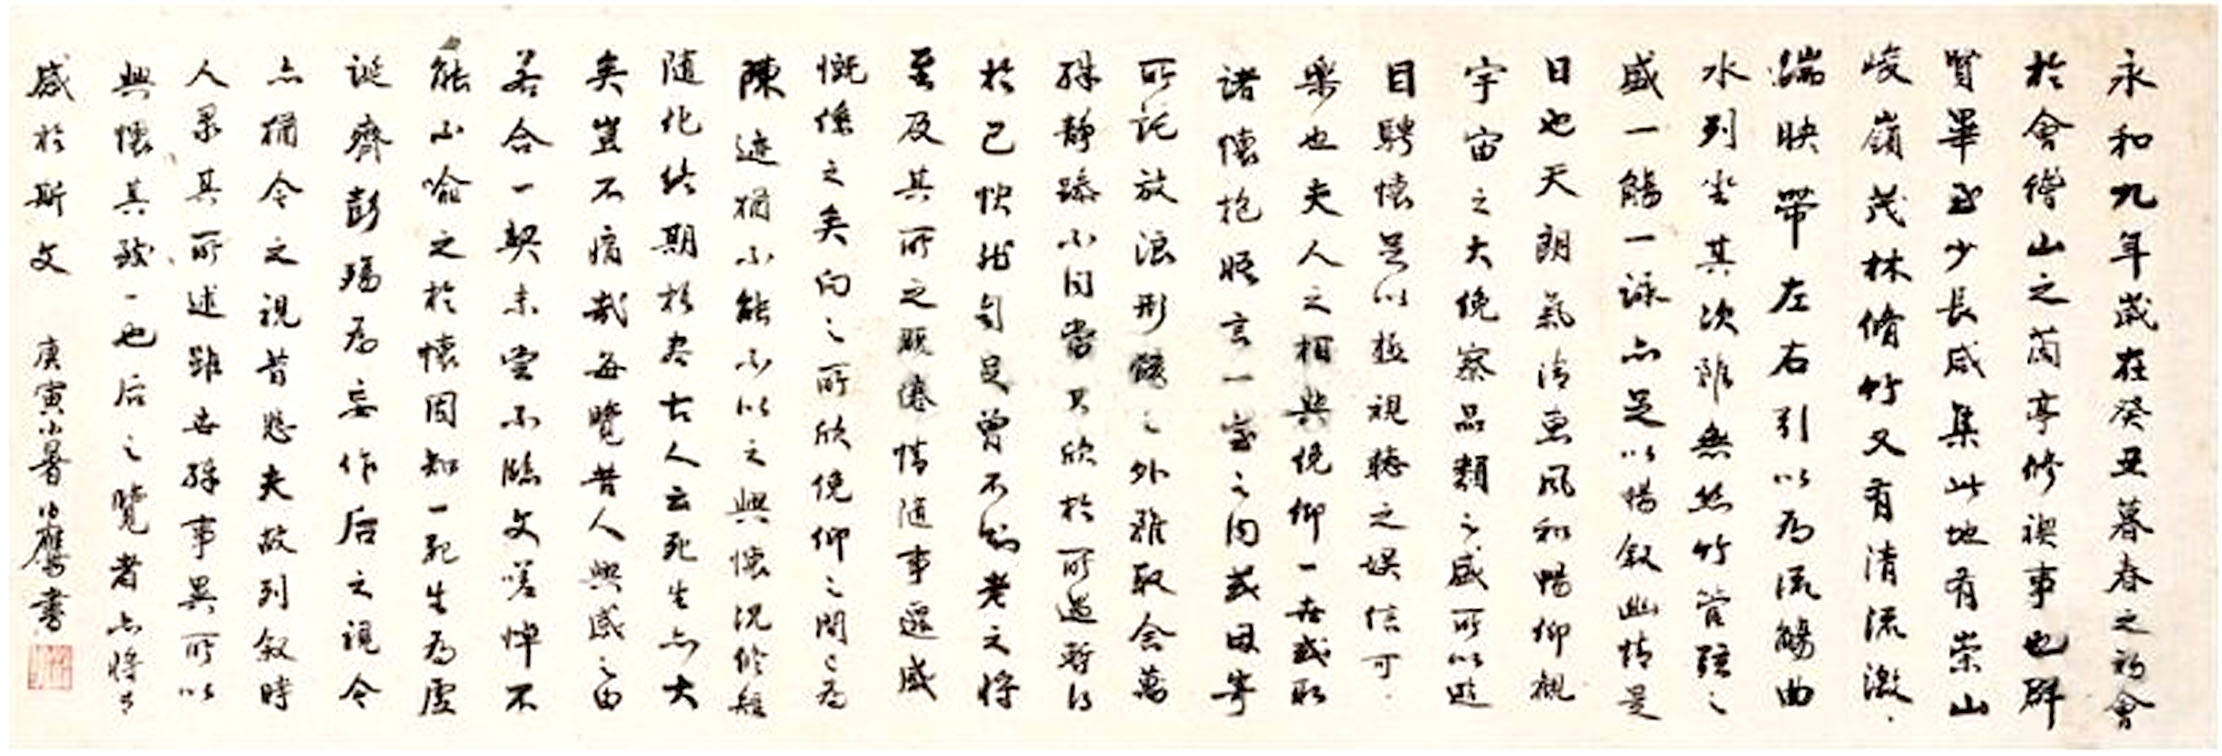 永和九年歲在癸丑暮春之初會
於會稽山之蘭亭修禊事也群
賢畢至少長咸集此地有崇山
峻嶺茂林脩竹又有清流激
湍映帶左右引以為流觴曲
水列坐其次雖無絲竹管弦之
盛一觴一詠亦足以暢敘幽情是
日也天朗氣清惠風和暢仰觀
宇宙之大俛察品類之盛所以遊
目騁懷足以極視聽之娛信可
樂也夫人之相與俛仰一世或取
諸懷抱悟言一室之內或因寄
所託放浪形骸之外雖取舍萬
殊靜躁不同當其欣於所遇暫得
於己怏然自足曾不知老之將
至及其所之既倦情隨事遷感
慨係之矣向之所欣俛仰之間以為
陳迹猶不能不以之興懷況修短
隨化終期於盡古人云死生亦大
矣豈不痛哉每覽昔人興感之由
若合一契未嘗不臨文嗟悼不
能不喻之於懷固知一死生為虛
誕齊彭殤為妄作后之視今
亦猶今之視昔悲夫故列敘時
人錄其所述雖世殊事異所以
興懷其致一也后之覽者亦將有
感於斯文 庚寅小暑伯鷹書